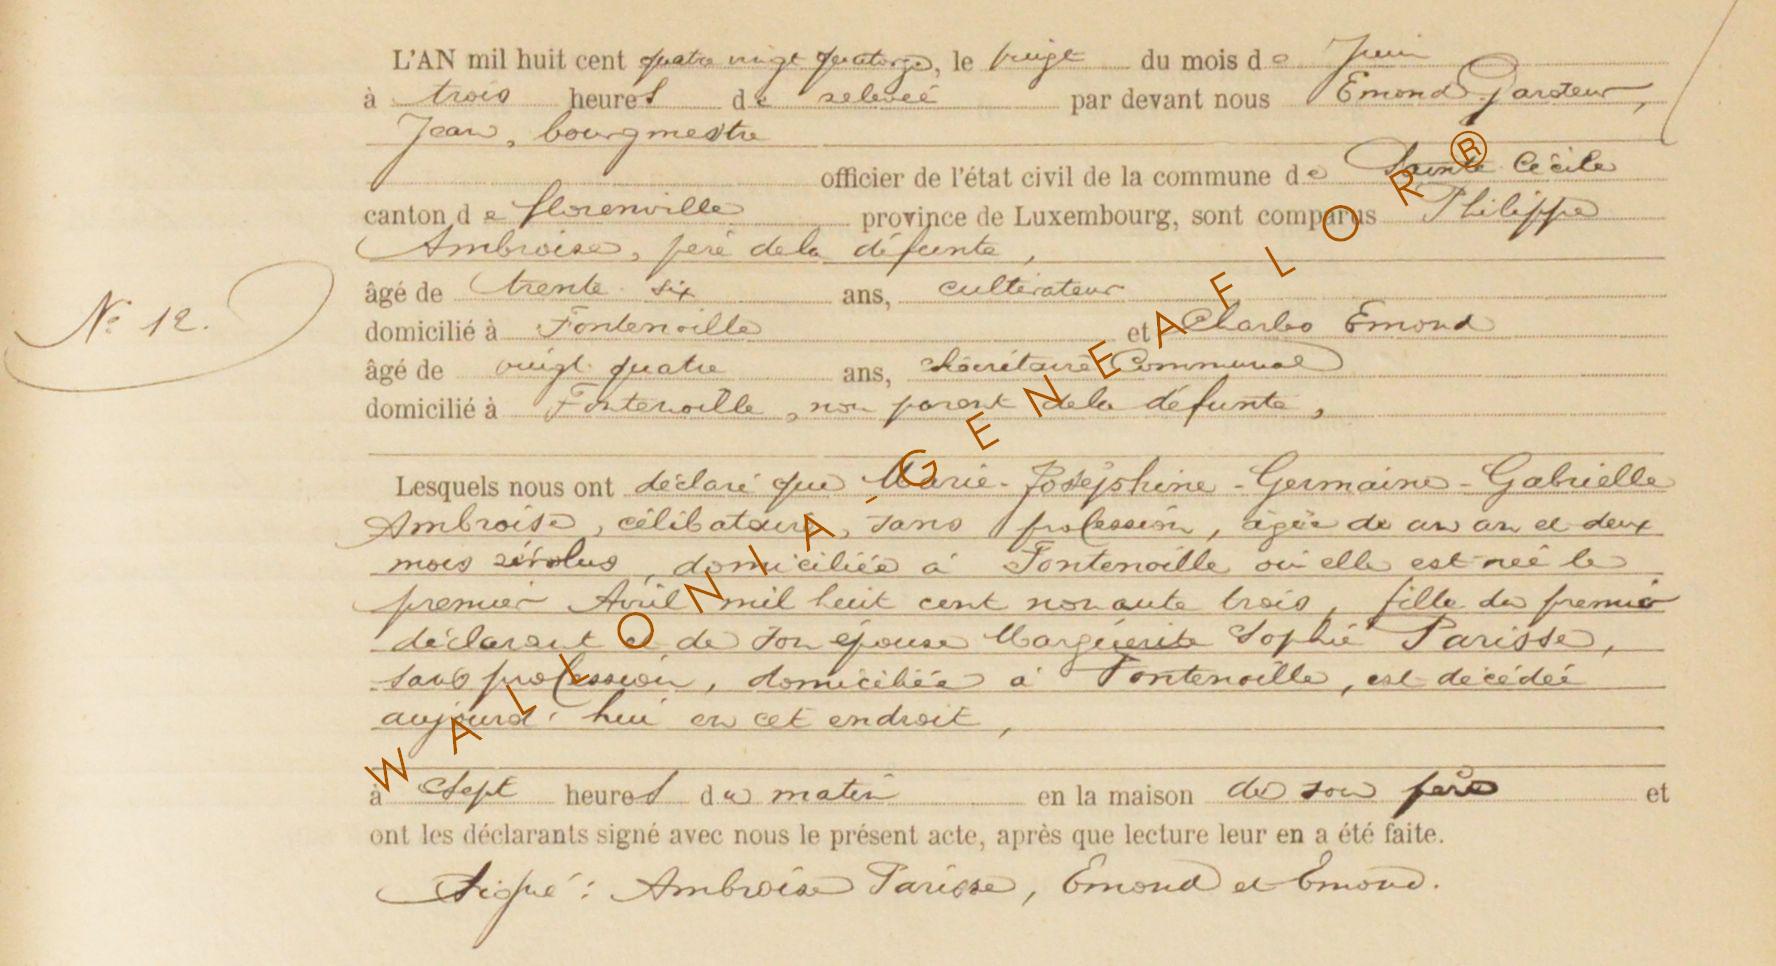 L'AN mil huit cent quatre vingt quatorze, le vingt du mois de Juin
à trois heures de relevée par devant nous Emond Pasteur,
Jean, bourgmestre
officier de l'état civil de la commune de Sainte Cécile
canton de florenville province de Luxembourg, sont comparus Philippe
Ambroise, peré dela défunte,
N° 12.
âgé de trente six ans, cultivateur
domicilié à Fontenoille et Charles Emond
âgé de vingt quatre ans, Sécrétaire Communal
domicilié à Fontenoille, non parent dela défunte,
Lesquels nous ont déclaré que Marie-Joséphine-Germaine-Gabrielle
Ambroise, célibataire, sans profession, âgée de un an et deux
mois révolus, domiciliée à Fontenoille où elle est née le
premier Avril mil huit cent nonante trois, fille du premier
déclarant et de son épouse Marguerite Sophie Parisse,
sans profession, domiciliée à Fontenoille, est décédée
aujourd'hui en cet endroit,
à Sept heures du matin en la maison de son père et
ont les déclarants signé avec nous le présent acte, après que lecture leur en a été faite.
Signé: Ambroise Parisse, Emond et Emond.
WALLONIA-GENEAFLOR®